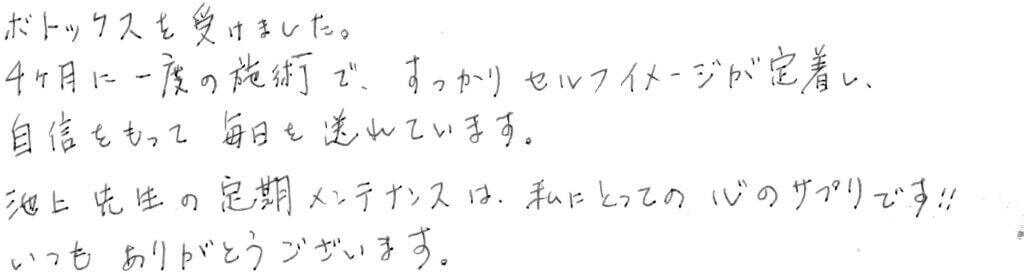 ボトックスを受けました。
4ヶ月に一度の施術で、すっかりセルフイメージが定着し、
自信をもって毎日を送れています。
池上先生の定期メンテナンスは、私にとっての心のサプリです!!
いつもありがとうございます。